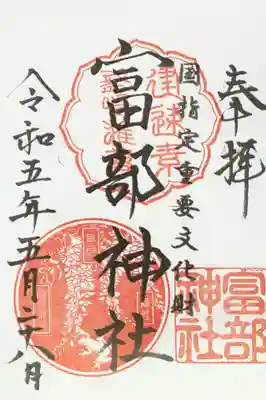 奉拝
国指定重要文化財
富部神社
令和五年五月二十八日
富部
神社
建速素